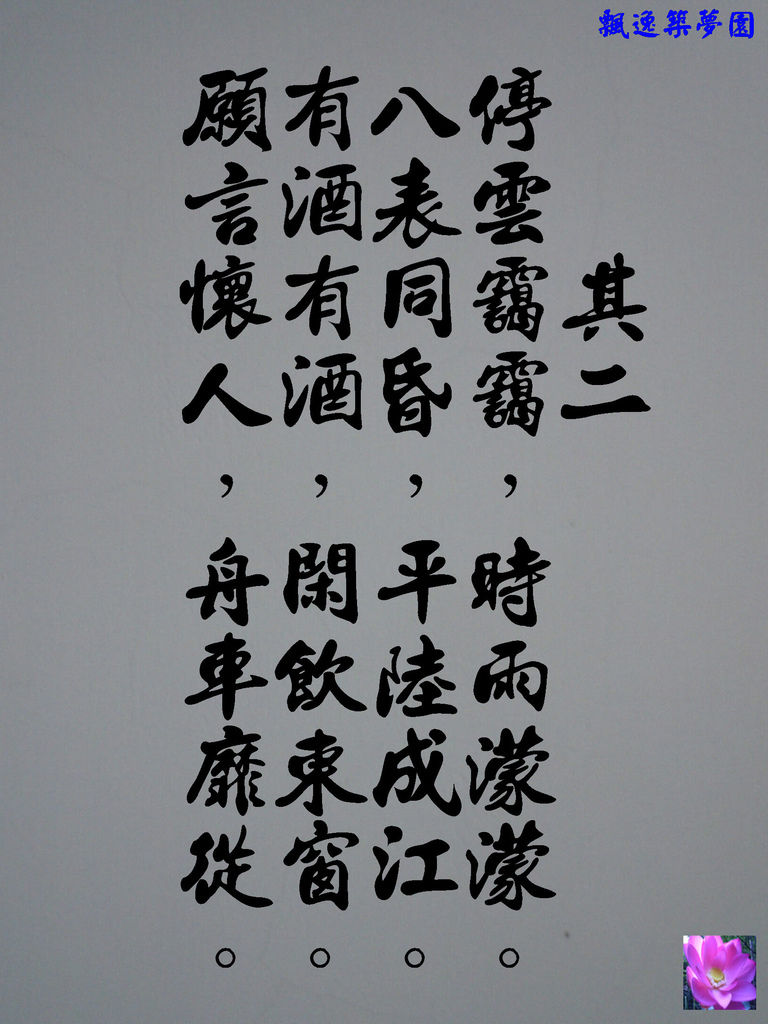 飄逸築夢園
其二
停雲靄靄，時雨濛濛。
八表同昏，平陸成江。
有酒有酒，閑飲東窗。
願言懷人，舟車靡從。